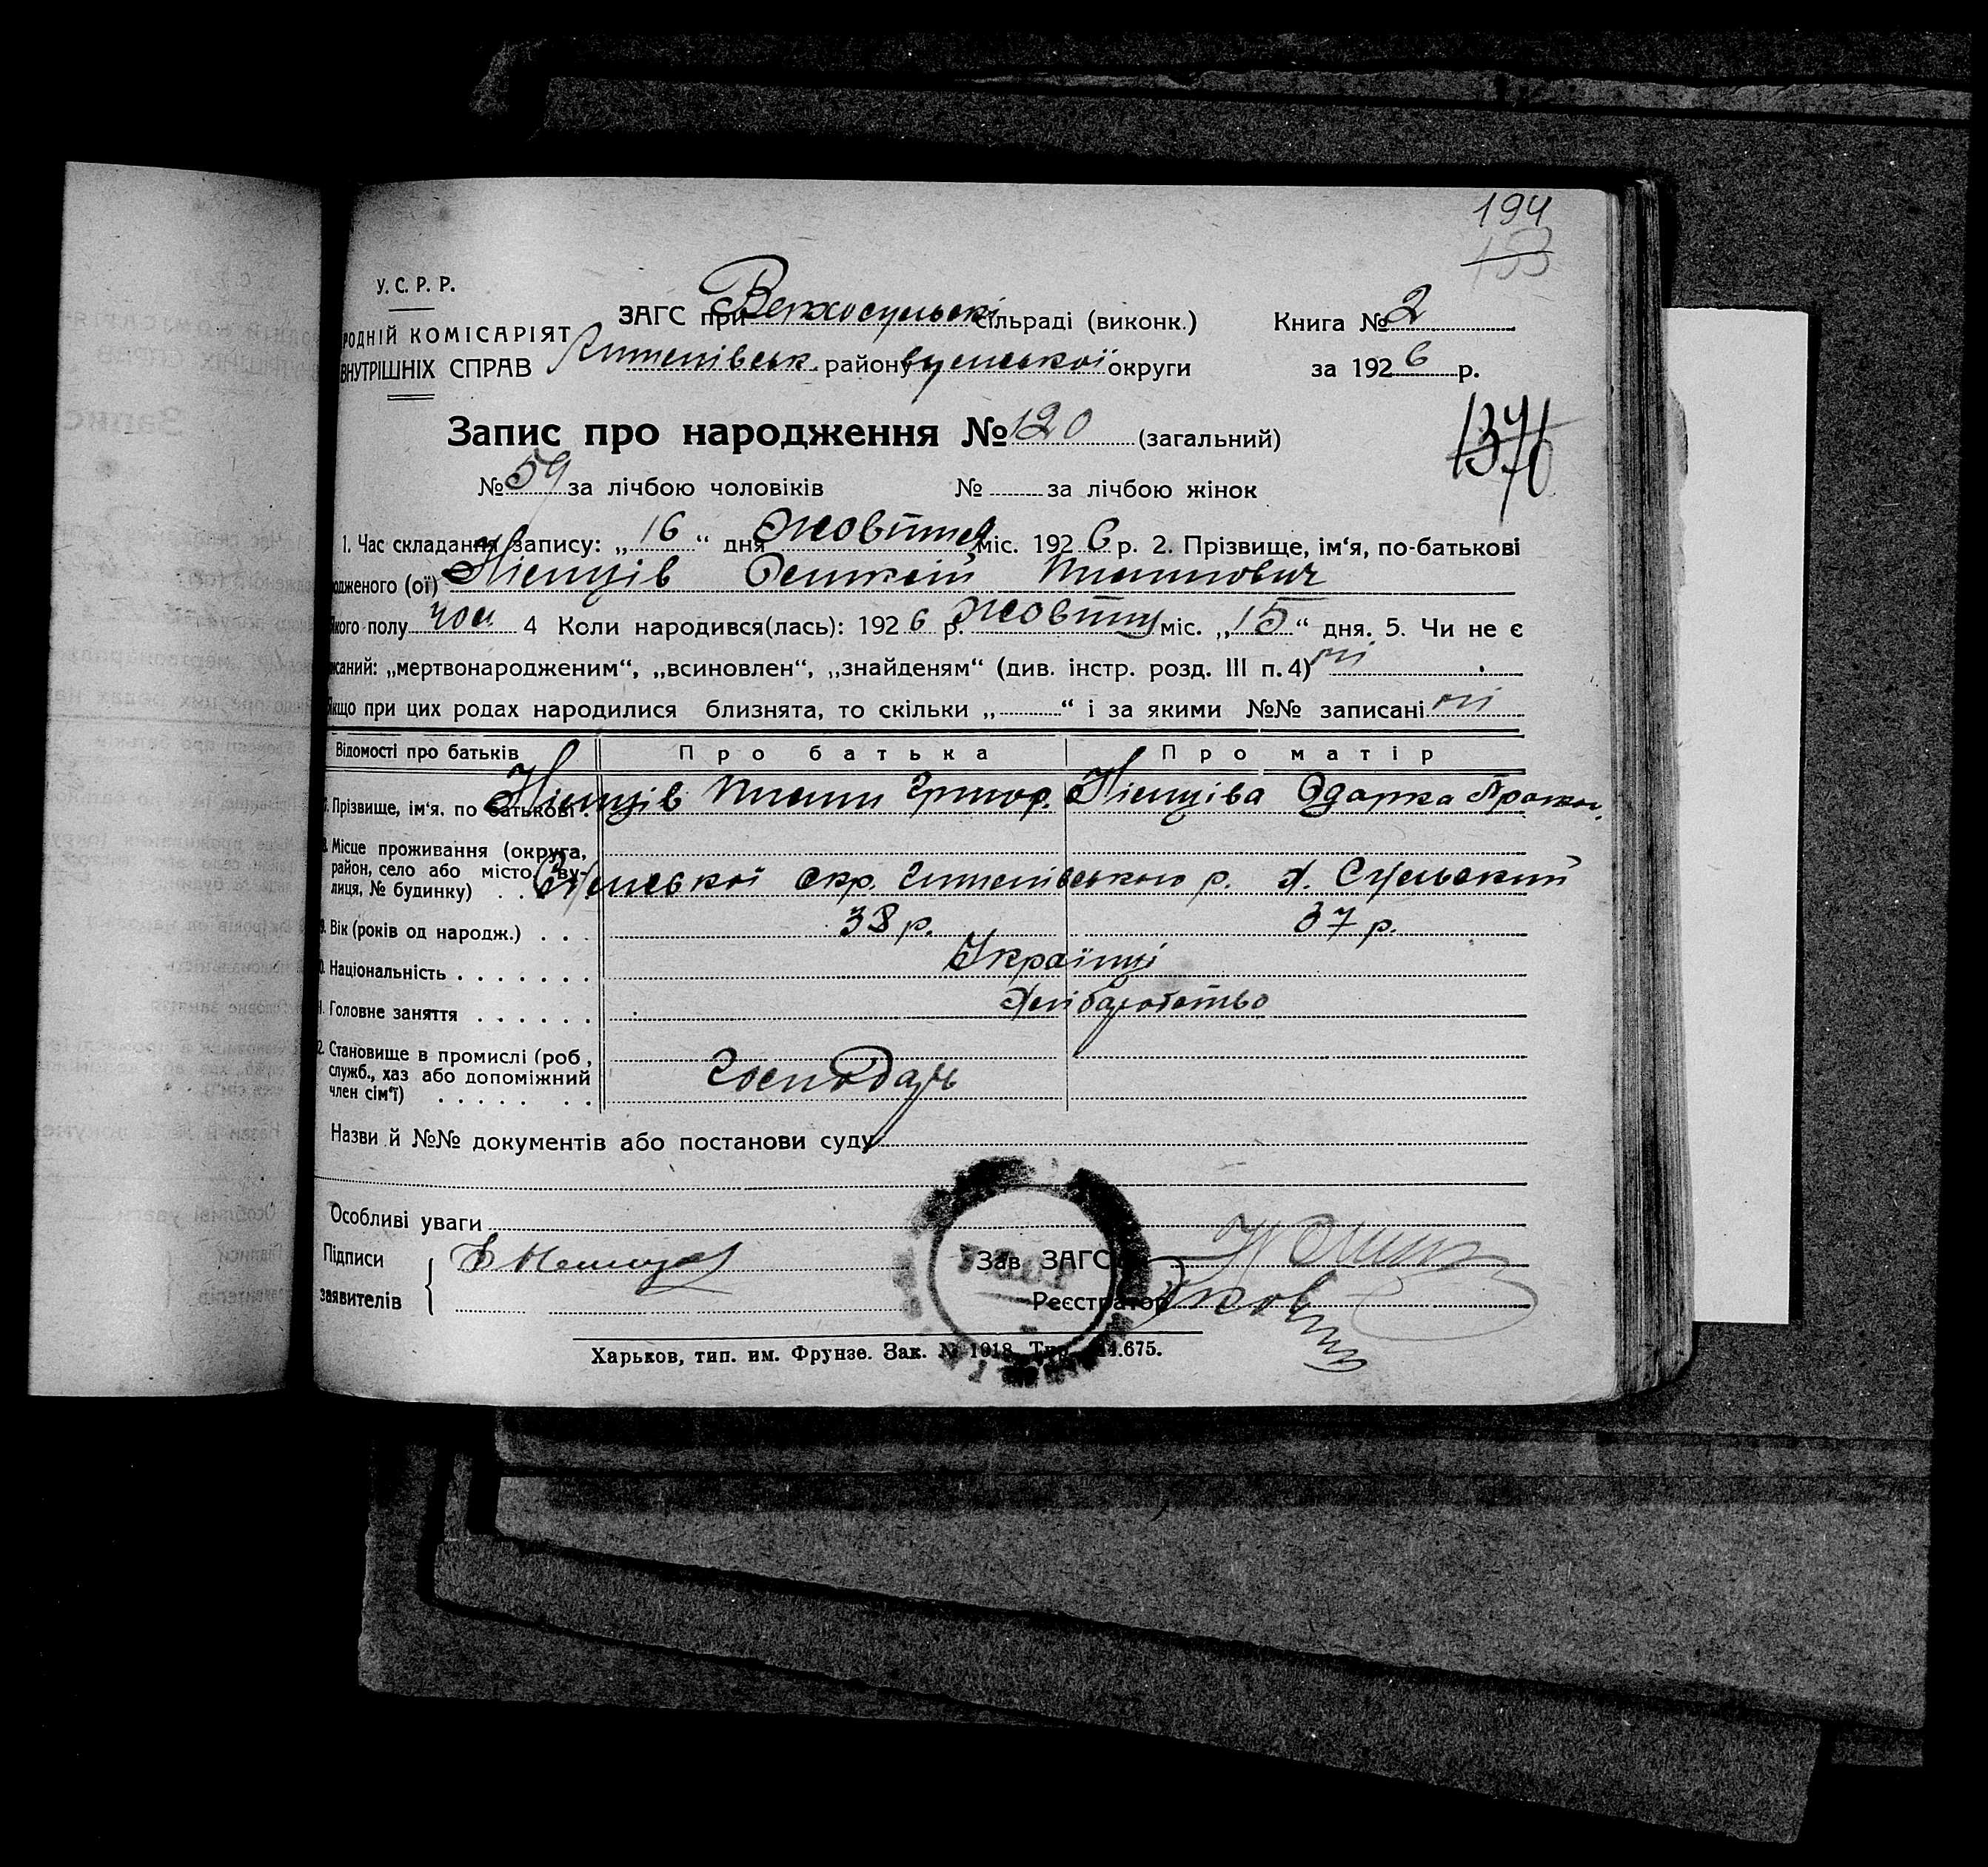 194
153
У. С. Р. Р.
РОДНІЙ КОМІСАРІЯТ
ВНУТРІШНІХ СПРАВ
ЗАГС при Верхосульскі сільраді (виконк.)
Книга № 2
району Сумської округи
за 1926 р.
Запис про народження № 120 (загальний)
1376
№ 59 за лічбою чоловіків № за лічбою жінок
1. Час складання запису: „16“ дня Жовтня міс. 1926 р. 2. Прізвище, ім‘я, по-батькові
одженого (ої) Німців
якого полу чол 4 Коли народився(лась): 1926 р. Жовтня міс. „15“ дня. 5. Чи не є
исаний: „мертвонародженим“, „всиновлен“, „знайденям“ (див. інстр. розд. III п. 4) ні
Якщо при цих родах народилися близнята, то скільки „ “ і за якими №№ записані ні
Відомості про батьків Про батька Про матір
Прізвище, ім‘я. по батькові Німців Григор. Німціва Одарка
Місце проживання (округа,
район, село або місто, ву-
лиця, № будинку) Сумської окр. Х. Сульський
Вік (років од народж.) 38 р. 37 р.
Національність Українці
Головне заняття Хліборобство
2. Становище в промислі (роб.,
служб., хаз або допоміжний
член сім‘ї) Господарь
Назви й №№ документів або постанови суду
Особливі уваги
Підписи
заявителів
Зав. ЗАГС
Реєстратор
Харьков, тип. им. Фрунзе. Зак. № 1018 4.675.